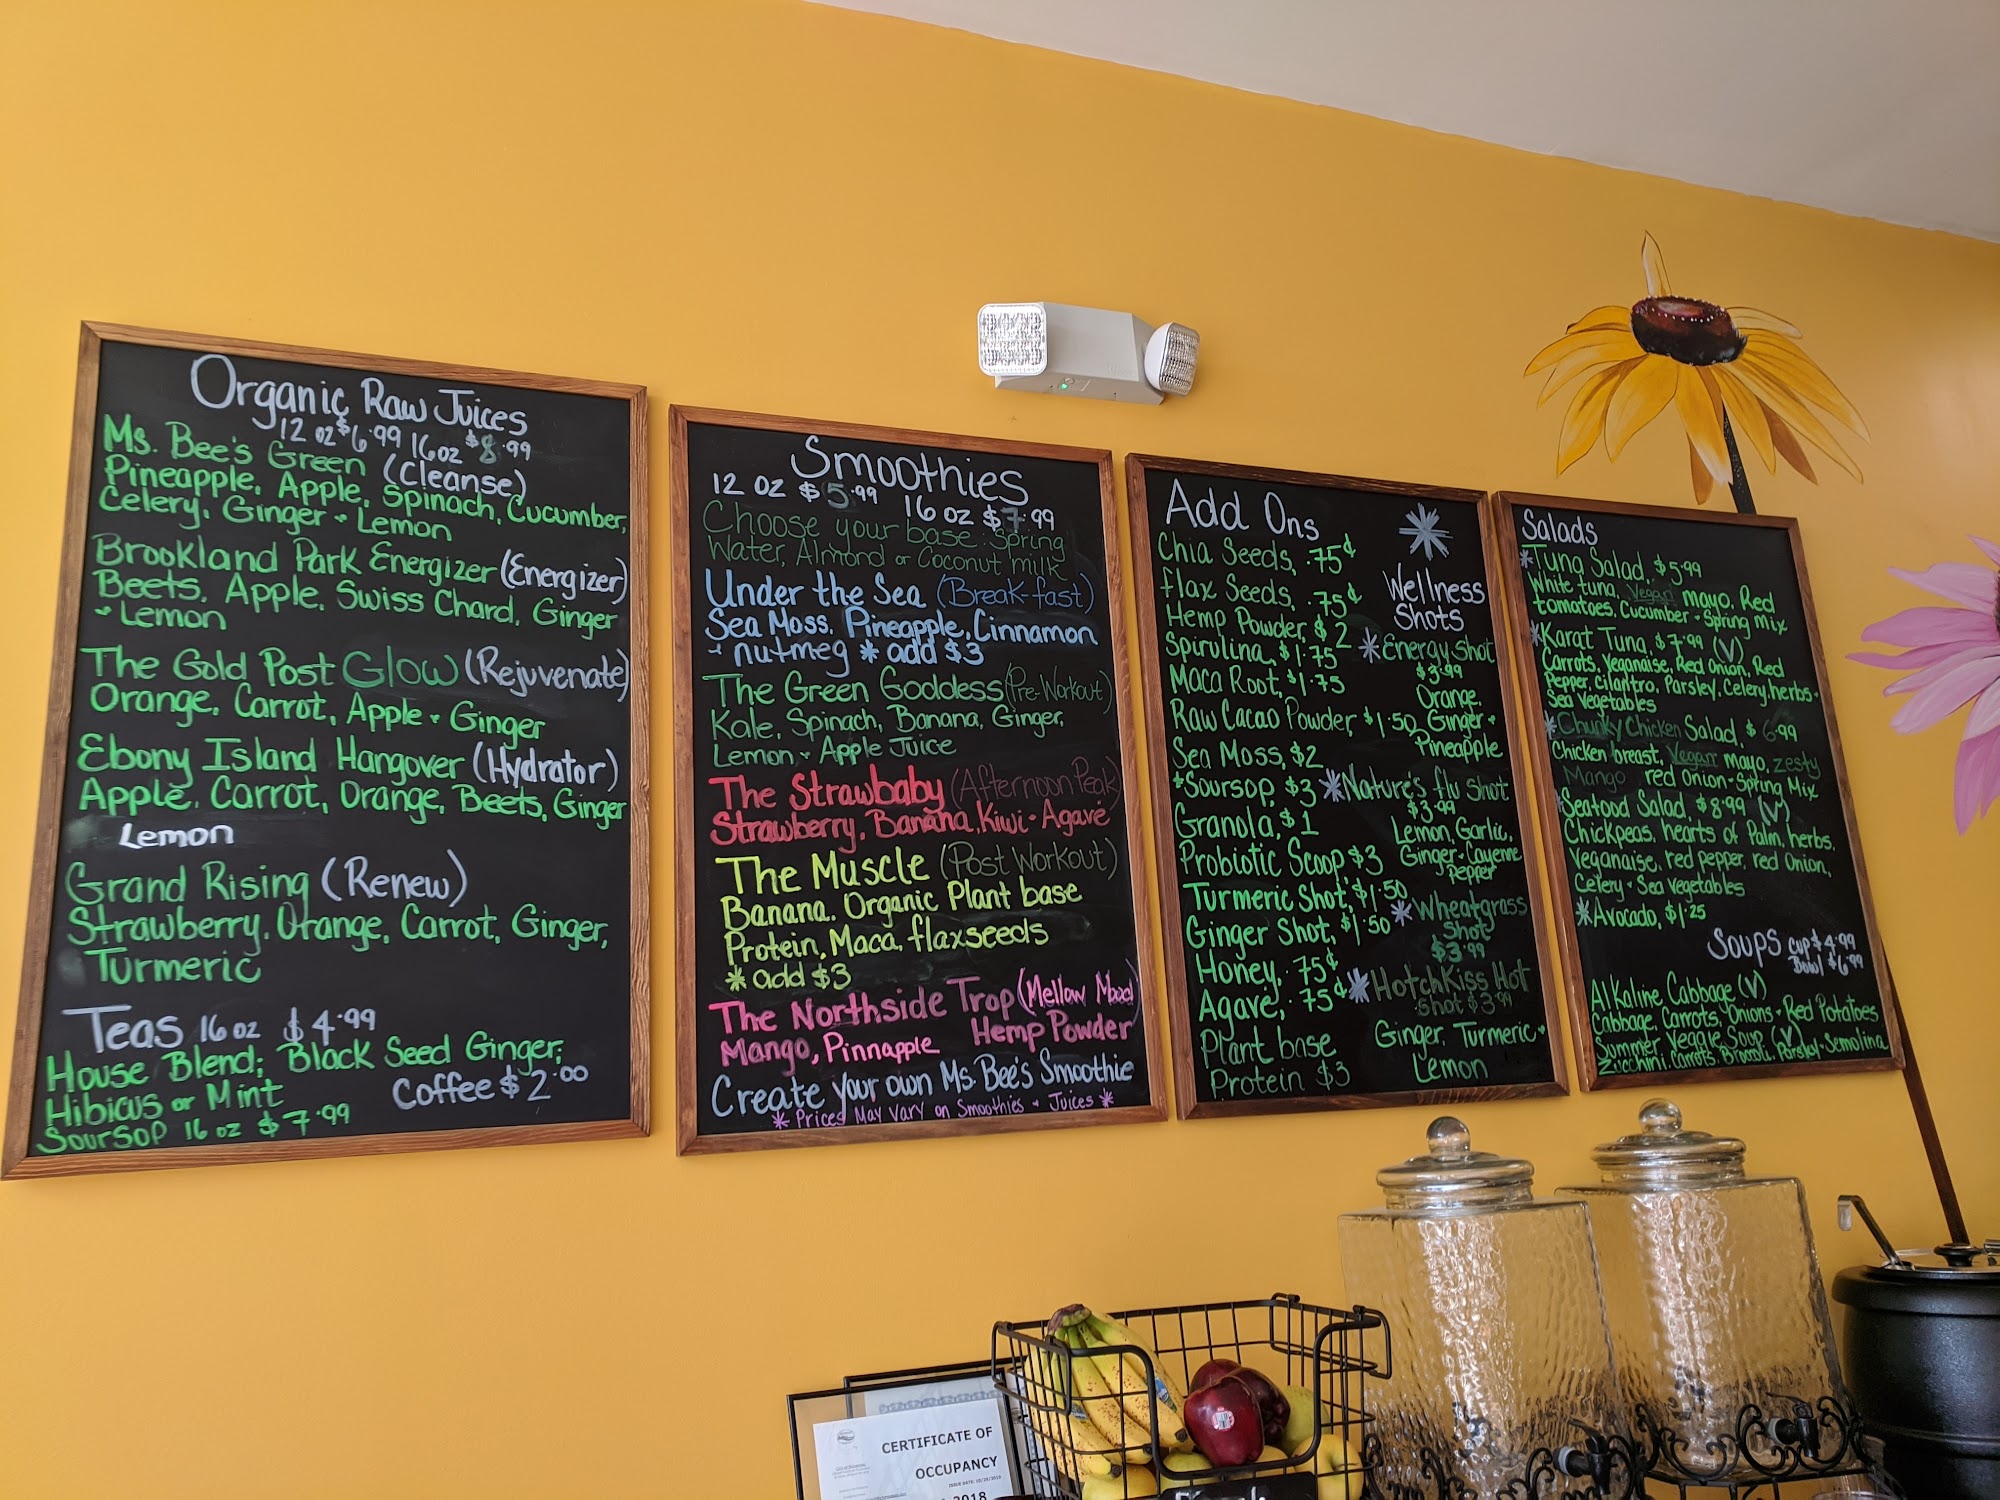 Organic Raw Juices
12 oz $6.99 16oz $8.99
Ms. Bee's Green (Cleanse)
Pineapple, Apple, Spinach, Cucumber,
Celery, Ginger + Lemon
Brookland Park Energizer (Energizer)
Beets, Apple, Swiss Chard, Ginger
+ Lemon
The Gold Post Glow (Rejuvenate)
Orange, Carrot, Apple + Ginger
Ebony Island Hangover (Hydrator)
Apple, Carrot, Orange, Beets, Ginger
Lemon
Grand Rising (Renew)
Strawberry, Orange, Carrot, Ginger,
Turmeric
Teas 16 oz $4.99
House Blend; Black Seed Ginger;
Hibicus or Mint
Coffee $2.00
Soursop 16 oz $7.99
Smoothies
12 oz $5.99 16 oz $7.99
Choose your base: Spring
Water, Almond or Coconut milk
Under the Sea (Break-fast)
Sea Moss, Pineapple, Cinnamon
+ nutmeg * add $3
The Green Goddess (Pre-Workout)
Kale, Spinach, Banana, Ginger,
Lemon + Apple Juice
The Strawbaby (Afternoon Peak)
Strawberry, Banana, Kiwi + Agave
The Muscle (Post Workout)
Banana, Organic Plant base
Protein, Maca, flaxseeds
* add $3
The Northside Trop (Mellow Mood)
Mango, Pinnapple Hemp Powder
Create your own Ms. Bee's Smoothie
* Prices May Vary on Smoothies + Juices *
Add Ons
Chia Seeds, .75¢
flax Seeds, .75¢
Hemp Powder, $2
Spirulina, $1.75
Maca Root, $1.75
Raw Cacao Powder, $1.50
Sea Moss, $2
*Soursop, $3
Granola, $1
Probiotic Scoop, $3
Turmeric Shot, $1.50
Ginger Shot, $1.50
Honey, .75¢
Agave, .75¢
Plant base
Protein $3
Wellness
Shots
* Energy Shot
$3.99
Orange,
Ginger +
Pineapple
* Nature's flu Shot
$3.99
Lemon, Garlic,
Ginger + Cayenne
Pepper
* Wheatgrass
Shot
$3.99
* HotchKiss Hot
Shot $3.99
Ginger, Turmeric +
Lemon
Salads
* Tuna Salad, $5.99
White tuna, Vegan mayo, Red
tomatoes, Cucumber + Spring Mix
* Karat Tuna, $7.99 (V)
Carrots, Veganaise, Red Onion, Red
Pepper, Cilantro, Parsley, Celery, herbs +
Sea Vegetables
* Chunky Chicken Salad, $6.99
Chicken breast, Vegan mayo, zesty
Mango red onion + Spring Mix
* Seafood Salad, $8.99 (V)
Chickpeas, hearts of Palm, herbs,
Veganaise, red pepper, red Onion,
Celery + Sea Vegetables
* Avocado, $1.25
Soups Cup $4.99
Bowl $6.99
Alkaline Cabbage (V)
Cabbage, Carrots, Onions + Red Potatoes
Summer Veggie Soup (V)
Zucchini, Carrots, Broccoli, Parsley + Semolina
CERTIFICATE OF
OCCUPANCY
2018